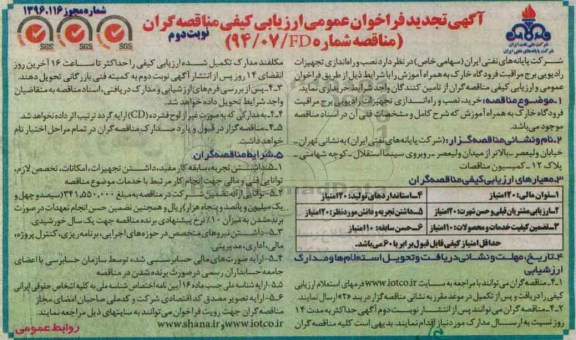 شماره مجوز ۱۳۹۴.۱۱۶
آگهی تجدید فراخوان عمومی ارزیابی کیفی مناقصه گران
نوبت دوم
(مناقصه شماره ۹۴/۰۷/FD)
شرکت پایانه های نفتی ایران
شرکت پایانه های نفتی ایران (سهامی خاص) در نظر دارد نصب و راه اندازی تجهیزات
رادیویی برج مراقبت فرودگاه خارک به همراه آموزش را با شرایط ذیل از طریق فراخوان
عمومی و ارزیابی کیفی مناقصه گران از تامین کنندگان واجد شرایط خریداری نماید
۱- موضوع مناقصه: خرید، نصب و راه اندازی تجهیزات رادیویی برج مراقبت
فرودگاه خارک به همراه آموزش که شرح کامل و مشخصات فنی آن در اسناد مناقصه
موجود می باشد.
۲- نام و نشانی مناقصه گزار: (شرکت پایانه های نفتی ایران) به نشانی تهران-
خیابان ولیعصر- بالاتر از میدان ولیعصر- روبروی سینما استقلال- کوچه شهامتی-
پلاک ۱۲- کمیسیون مناقصات
۳- معیارهای ارزیابی کیفی مناقصه گران
۱- توان مالی: ۲۰ امتیاز
۴- استانداردهای تولید: ۲۰ امتیاز
۲- ارزیابی مشتریان قبلی و حسن شهرت: ۲۰ امتیاز
۵- داشتن تجربه و دانش مورد نظر: ۲۰ امتیاز
۳- تضمین کیفیت خدمات و محصولات: ۱۰ امتیاز
۶- حسن سابقه: ۱۰ امتیاز
حداقل امتیاز کیفی قابل قبول برابر با ۶۰ می باشد.
۴- تاریخ، مهلت و نشانی دریافت و تحویل استعلام ها و مدارک
ارزشیابی
۴-۱- مناقصه گران می توانند با مراجعه به سایت www.iotco.ir فرمهای استعلام ارزیابی
کیفی را دریافت و پس از تکمیل در موعد مقرر به نشانی مناقصه گزار در بند ۲ ارسال نمایند.
۴-۲- مناقصه گران می توانند پس از انتشار نوبت دوم آگهی حداکثر به مدت ۱۴
روز نسبت به ارسال مدارک مورد نیاز اقدام نمایند. بدیهی است کلیه مناقصه گران
مکلفند مدارک تکمیل شده ارزیابی کیفی را حداکثر تا ساعت ۱۶ آخرین روز
انقضای ۱۴ روز پس از انتشار آگهی نوبت دوم به کمیته فنی بازرگانی تحویل دهند.
۴-۳- پس از بررسی فرم های ارزشیابی و مدارک دریافتی، اسناد مناقصه به متقاضیان
واجد شرایط تحویل داده خواهد شد.
۴-۴- به مدارکی که به صورت غیر از لوح فشرده (CD) ارایه گردد ترتیب اثر داده نخواهد شد.
۴-۵- مناقصه گزار در قبول و یا رد مدارک مناقصه گران در تمام مراحل اختیار تام
خواهد داشت.
۵- شرایط مناقصه گران
۵-۱- داشتن تجربه، سابقه کار مفید، داشتن تجهیزات، امکانات، تخصص لازم،
توانایی فنی و مالی جهت انجام کار مرتبط با خدمات موضوع مناقصه
شرکت در مناقصه به مبلغ ۳۴۱,۵۵۰,۰۰۰ (سیصد و چهل و
یک میلیون و پانصد و پنجاه هزار) ریال و همچنین تضمین حسن انجام تعهدات در صورت
برنده شدن به میزان ۱۰٪ نرخ پیشنهادی برنده مناقصه جهت یک سال خورشیدی.
۵-۳- داشتن نیروهای متخصص در حوزه های اجرایی، برنامه ریزی، کنترل پروژه،
مالی، اداری، مدیریتی
۵-۴- ارایه صورت های مالی حسابرسی شده توسط سازمان حسابرسی یا اعضای
جامعه حسابداران رسمی در صورت برنده شدن در مناقصه
۵-۵- ارایه شناسه ملی جسب ماده ۱۶ آیین نامه اختصاص شناسه ملی به کلیه اشخاص حقوقی ایرانی
۵-۶- ارایه تصویر مصدق کد اقتصادی شرکت و کدملی صاحبان امضای مجاز
مناقصه گران جهت رویت فراخوان می توانند به سایتهای ذیل مراجعه نمایند.
www.shana.ir و www.iotco.ir
روابط عمومی